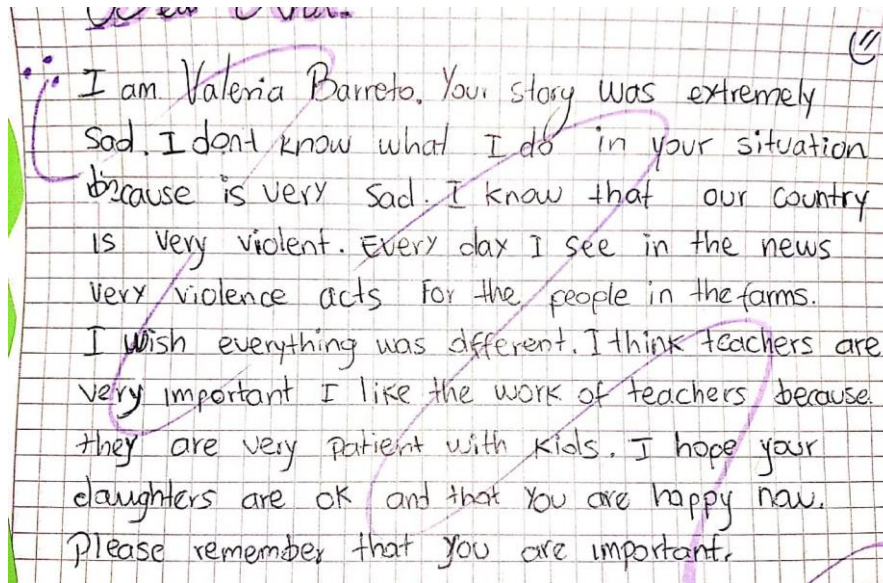 I am Valeria Barreto. Your story was extremely
sad. I dont know what I do in your situation
because is very sad. I know that our country
is very violent. Every day I see in the news
very violence acts for the people in the farms.
I wish everything was different. I think teachers are
very important I like the work of teachers because
they are very patient with kids. I hope your
daughters are ok and that you are happy now.
Please remember that you are important.